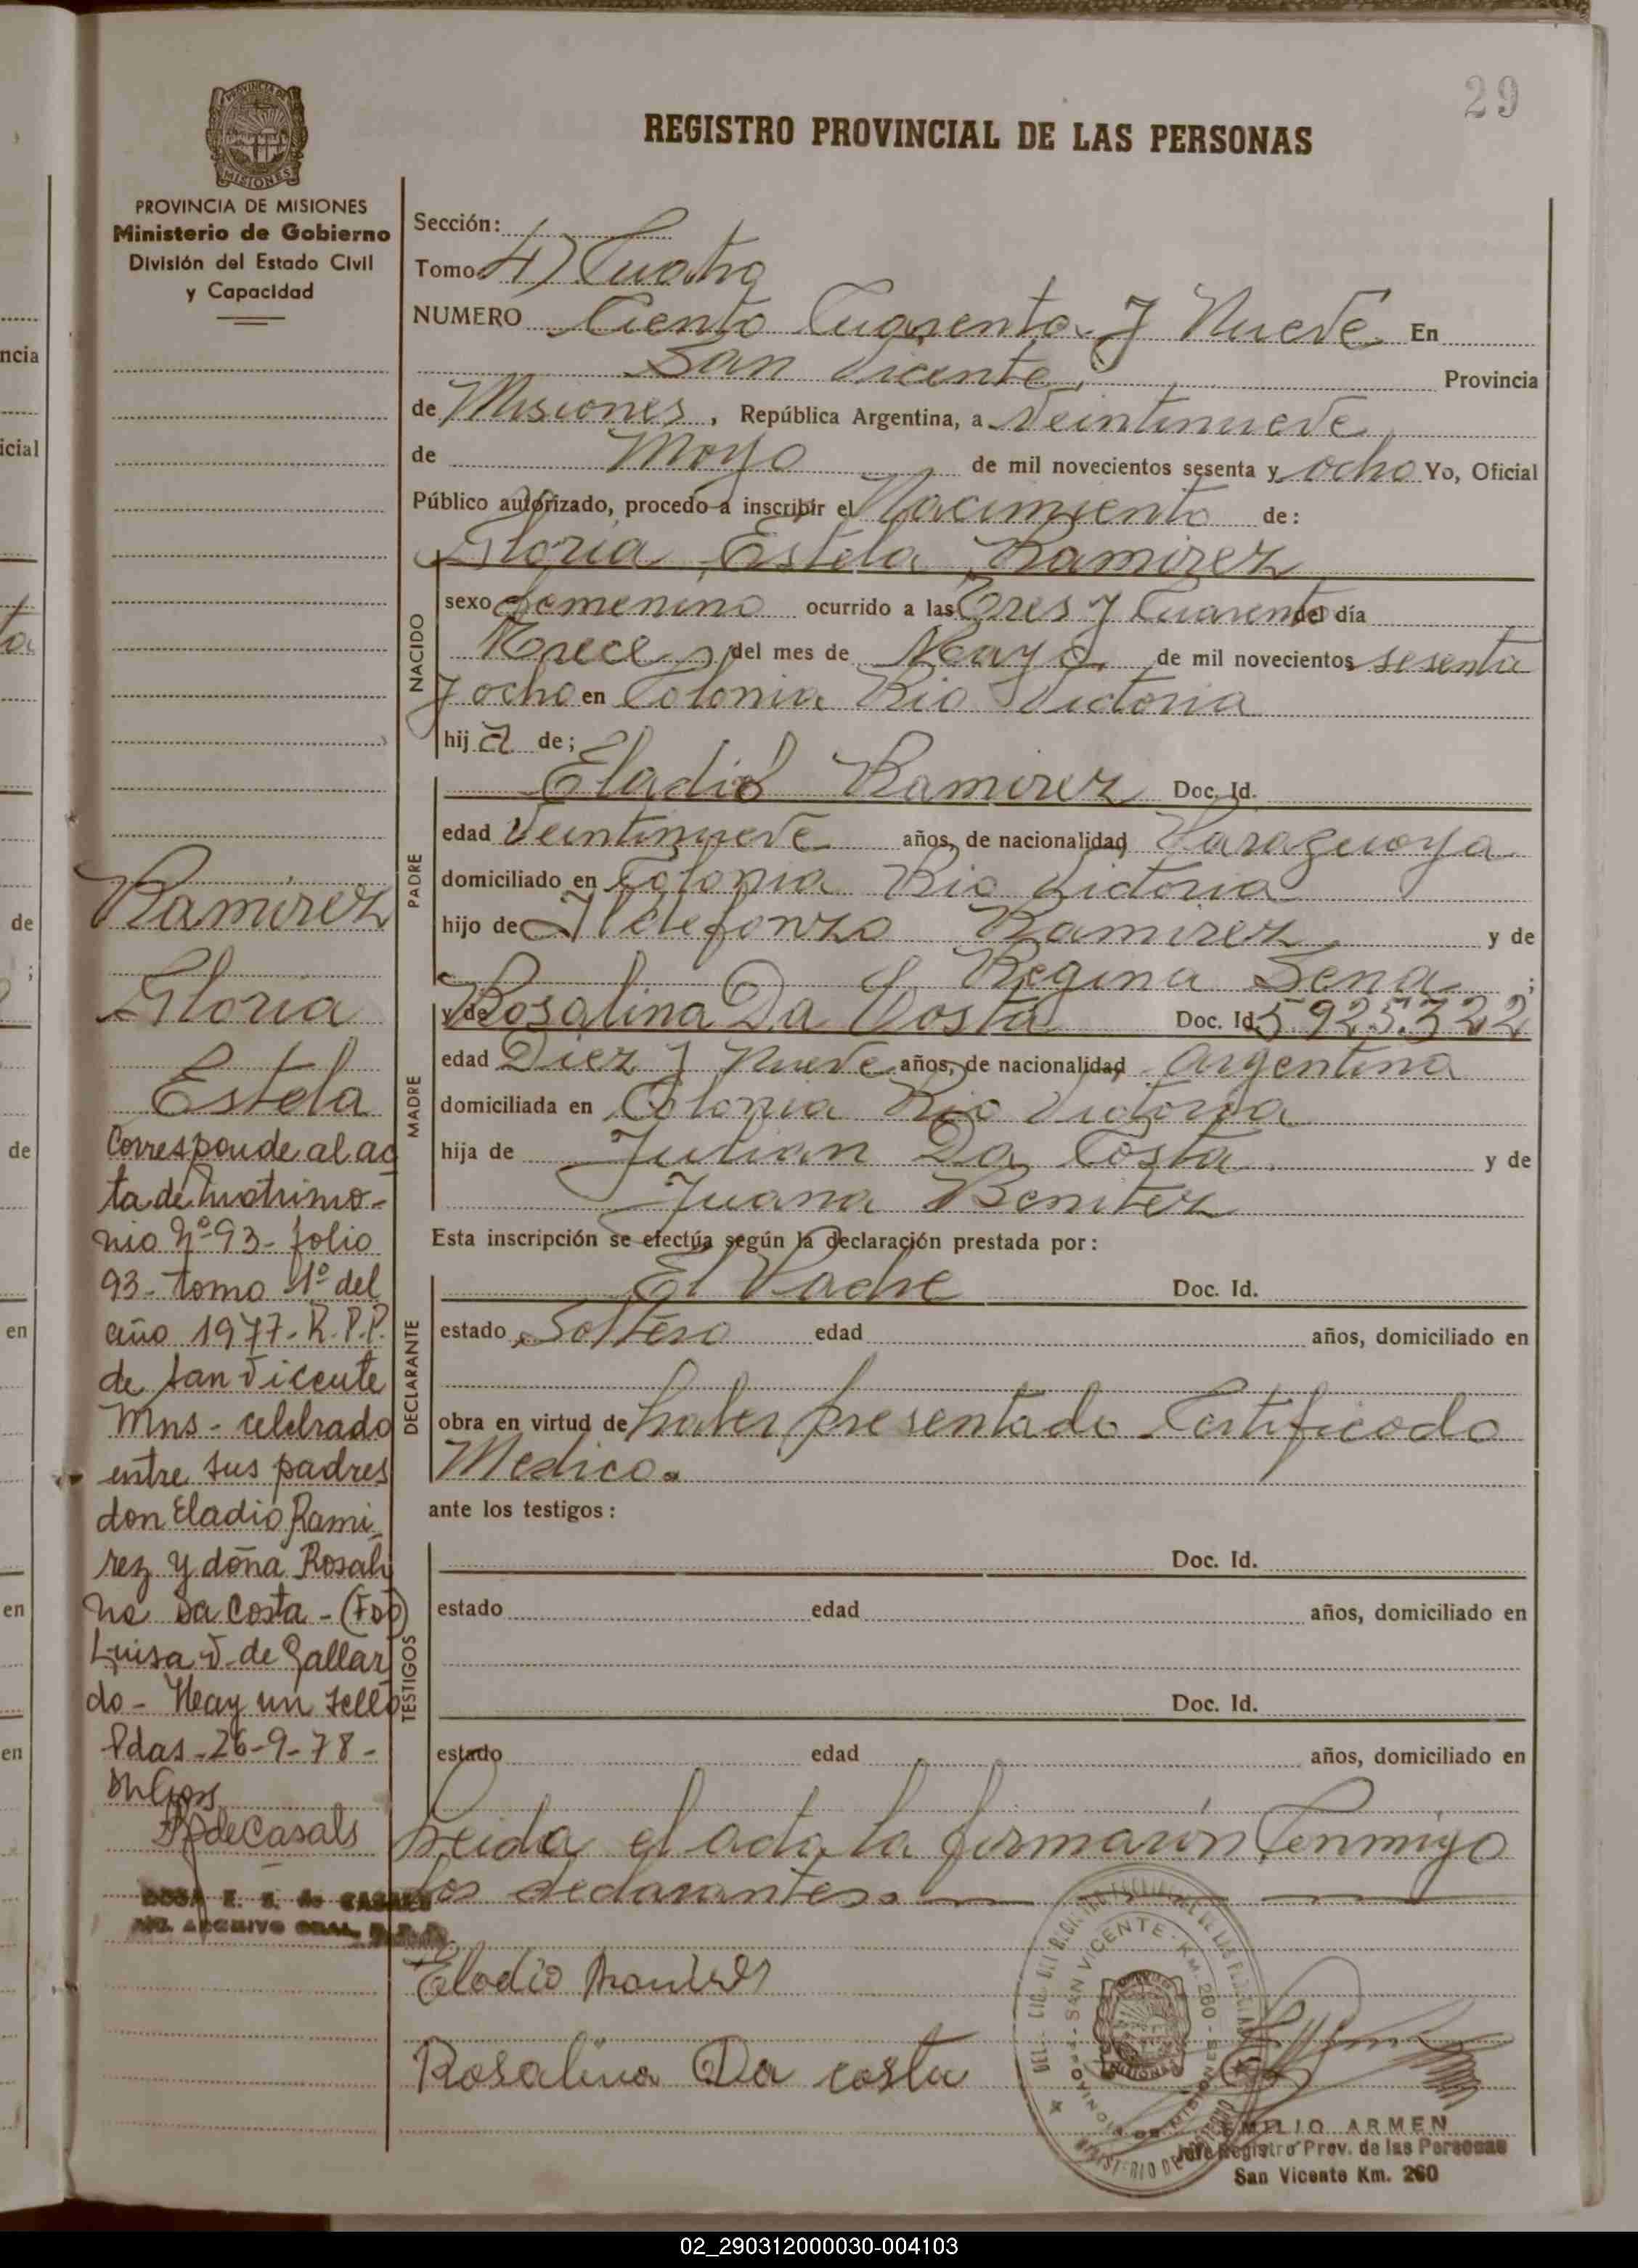 29
REGISTRO PROVINCIAL DE LAS PERSONAS
PROVINCIA DE MISIONES
Ministerio de Gobierno
División del Estado Civil
y Capacidad
Sección:
Tomo 4) Cuatro
NUMERO Ciento Cuarenta y Nueve En
San Vicente, Provincia
de Misiones, República Argentina, a Veintinueve
de Mayo de mil novecientos sesenta y ocho Yo, Oficial
Público autorizado, procedo a inscribir el Nacimiento de:
Gloria Estela Ramirez
NACIDO
sexo femenino ocurrido a las Tres y Cuarenta del día
Trece del mes de Mayo de mil novecientos sesenta
y ocho en Colonia Rio Victoria
hij a de;
PADRE
Eladio Ramirez Doc. Id.
edad Veintinueve años, de nacionalidad Paraguaya
domiciliado en Colonia Rio Victoria
hijo de Ildefonzo Ramirez y de
Regina Sena ;
MADRE
y de Rosalina Da Costa Doc. Id. 5.925.322
edad Diez y Nueve años, de nacionalidad Argentina
domiciliada en Colonia Rio Victoria
hija de Julian Da Costa y de
Juana Benitez
Esta inscripción se efectúa según la declaración prestada por:
DECLARANTE
El Padre Doc. Id.
estado Soltero edad años, domiciliado en
obra en virtud de haber presentado Certificado
Medico.
ante los testigos:
TESTIGOS
Doc. Id.
estado edad años, domiciliado en
Doc. Id.
estado edad años, domiciliado en
Leida el acta la firmaron Conmigo
los declarantes.
Eladio Ramirez
Rosalina Da costa
Ramirez
Gloria
Estela
Corresponde al ac
ta de matrimo-
nio Nº 93 - folio
93 - tomo 1º del
año 1977 - R.P.P.
de San Vicente
Mns - celebrado
entre sus padres
don Eladio Rami-
rez y doña Rosali
na Da Costa - (Fdo)
Luisa V. de Gallar
do - Hay un sello
Pdas - 26-9-78 -
deCasals
SAN VICENTE - KM. 260
PROVINCIA DE MISIONES
EMILIO ARMEN
Jefe Registro Prov. de las Personas
San Vicente Km. 260
ncia
icial
de
;
de
en
en
en
02_290312000030-004103